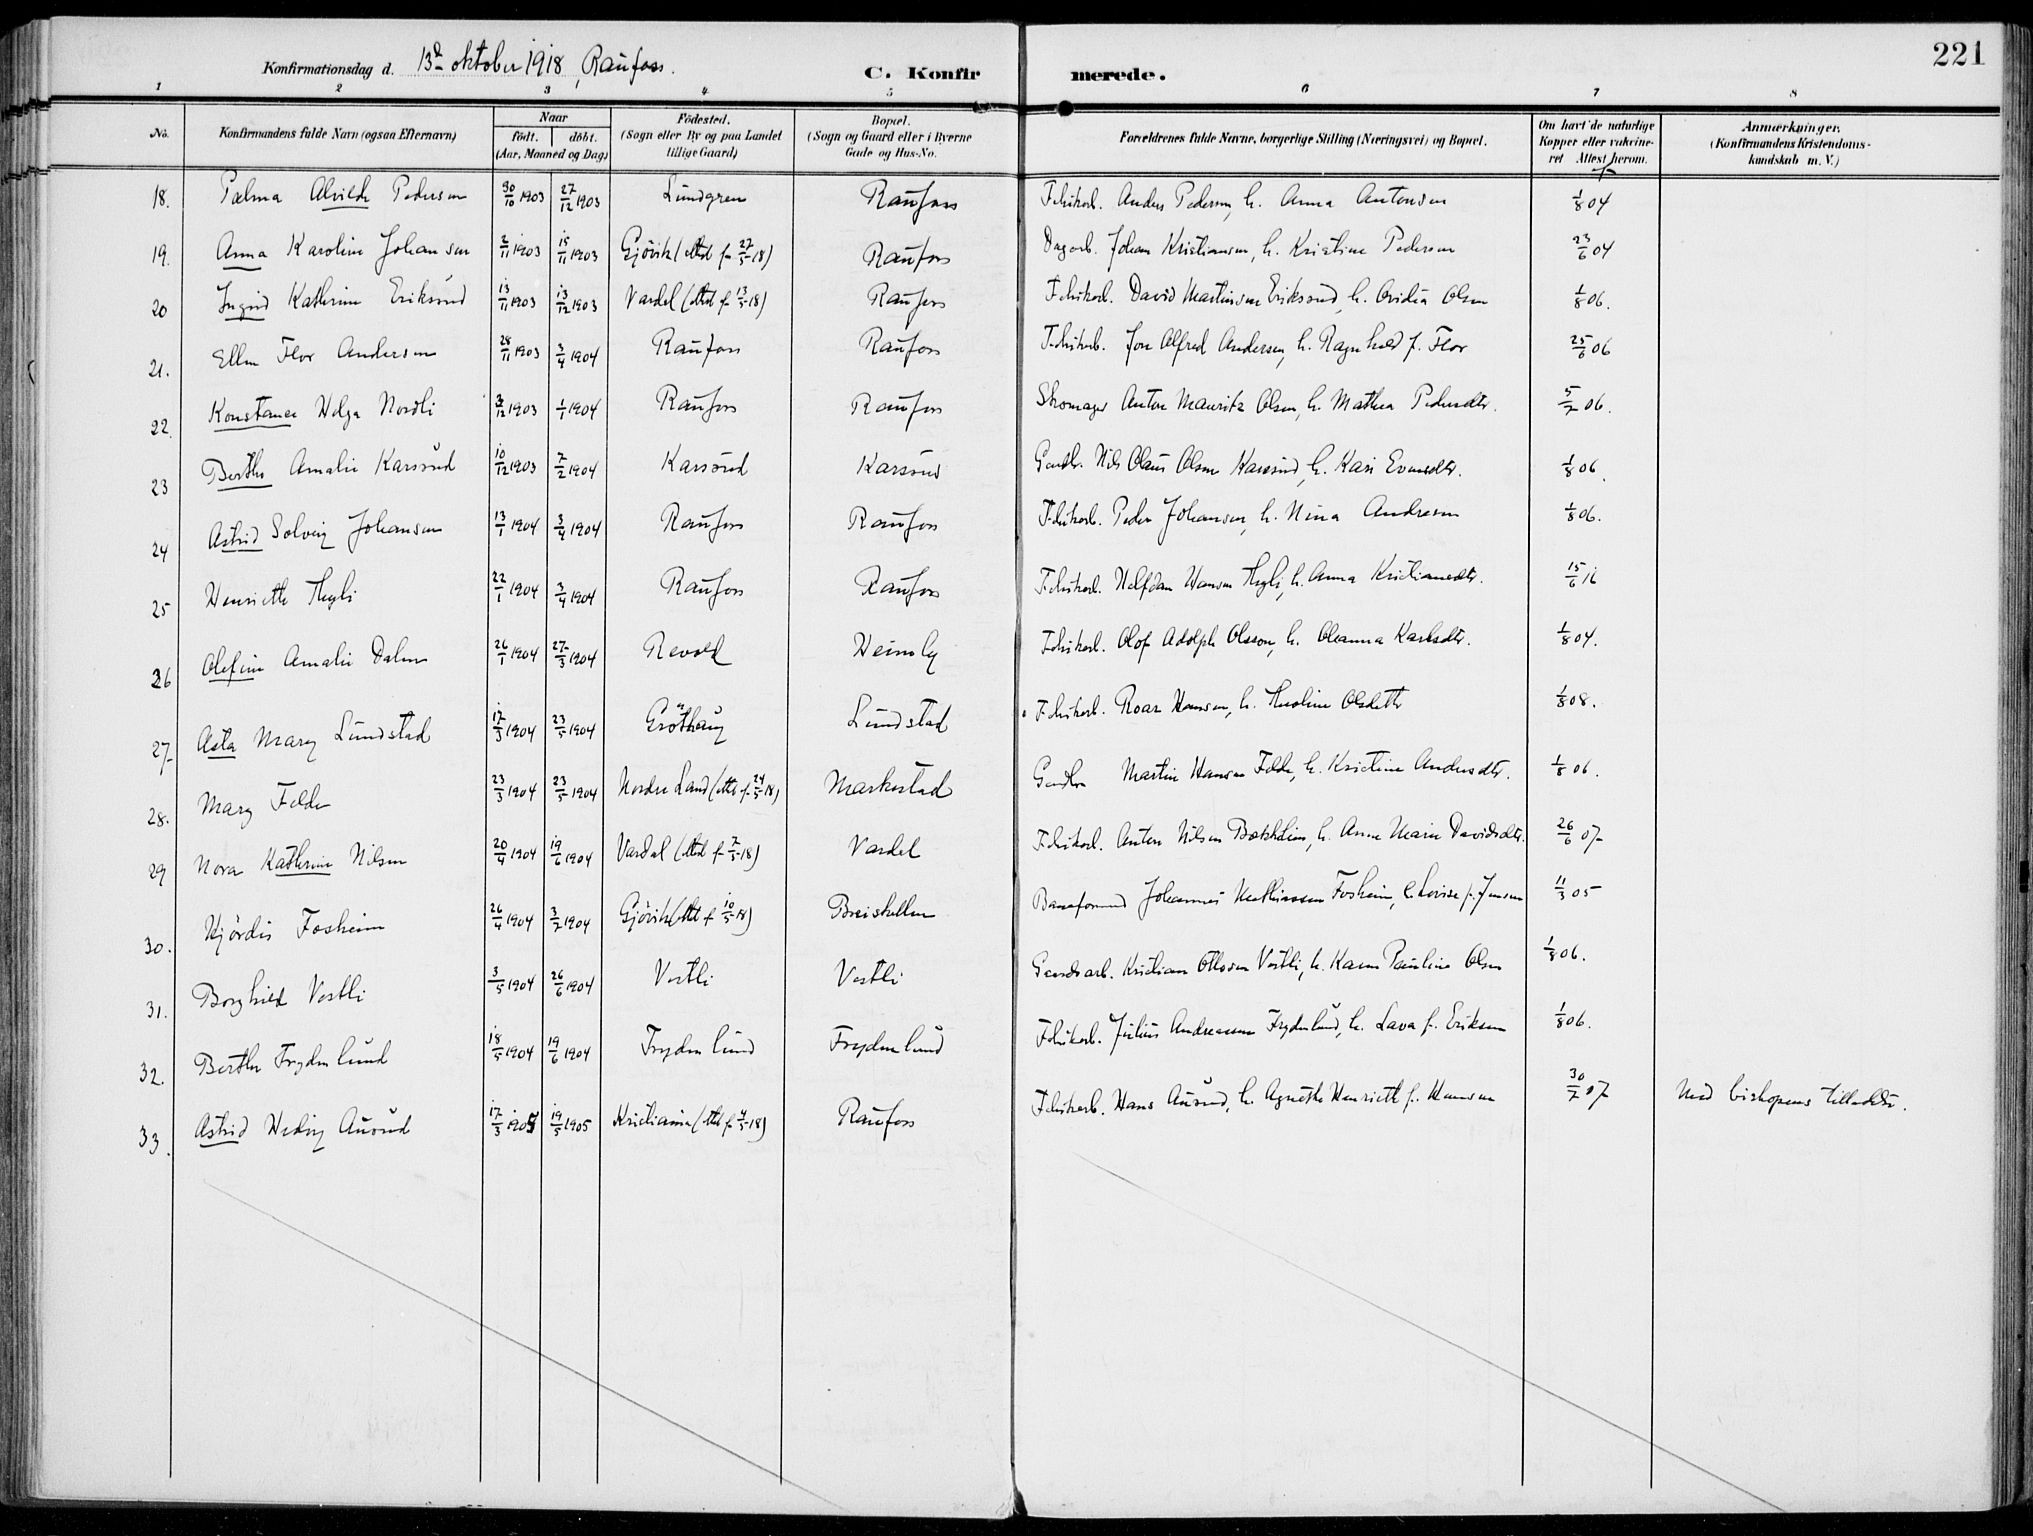 221
Konfirmationsdag d. 13de oktober 1918, Raufoss.
C. Konfirmerede.
1 2 3 4 5 6 7 8
No. | Konfirmandens fulde Navn (ogsaa Efternavn) | Naar födt. döbt. (Aar, Maaned og Dag) | Födested. (Sogn eller By og paa Landet tillige Gaard) | Bopæl. (Sogn og Gaard eller i Byerne Gade og Hus-No. | Forældrenes fulde Navne, borgerlige Stilling (Næringsvei) og Bopæl. | Om havt de naturlige Kopper eller vakcineret Attest herom. | Anmærkninger. (Konfirmandens Kristendomskundskab m. V.)
18. Palma Alvilde Pedersen 30/10 1903 27/12 1903 Lundgren Raufoss Fabrikarb. Anders Pedersen, h. Anna Antonsen 1/8 04
19. Anna Karoline Johansen 2/11 1903 15/11 1903 Gjövik (att. f. 27/5-18) Raufoss Dagarb. Johan Kristiansen, h. Kristine Pedersen 23/6 04
20 Ingrid Kathrine Eriksrud 13/11 1903 13/12 1903 Vardal (att. f. 13/5-18) Raufoss Fabrikarb. David Martinsen Eriksrud, h. Ovidia Olsen 1/8 06.
21. Ellen Flor Andersen 28/11 1903 3/4 1904 Raufoss Raufoss Fabrikarb. Jon Alfred Andersen, h. Ragnhild f. Flor 25/6 06
22. Konstance Helga Nordli 3/12 1903 1/1 1904 Raufoss Raufoss Skomager Anton Mauritz Olsen, h. Mathea Pedersdtr. 5/7 06.
23 Berthe Amalie Karsrud 10/12 1903 7/2 1904 Karsrud Karsrud Gaardbr. Nils Olaus Olsen Karsrud, h. Kari Evensdtr. 1/8 06.
24 Astrid Solveig Johansen 13/1 1904 3/4 1904 Raufoss Raufoss Fabrikarb. Peder Johansen, h. Nina Andresen 1/8 06.
25 Henriette Thygli 22/1 1904 3/4 1904 Raufoss Raufoss Fabrikarb. Halfdan Hansen h. Anna Kristiansdtr. 15/6 16
26 Olefine Amalie Dalen 26/1 1904 27/3 1904 Revold Heimly Fabrikarb. Olof Adolph Olsson, h. Oleanna Karlsdtr. 1/8 04.
27 Asta Mary Lundstad 17/3 1904 23/5 1904 Gröthaug Lundstad Fabrikarb. Roar Hansen, h. Olsdatter 1/8 08.
28. Mary Felde 23/3 1904 23/5 1904 Nordre Land (att. f. 24/5-18) Markestad Gaardbr. Martin Hansen Felde, h. Kristine Andersdtr. 1/8 06.
29 Nora Kathrine Nilsen 20/4 1904 19/6 1904 Vardal (att. f. 7/5-18) Vardal Fabrikarb. Anton Nilsen h. Anne Marie Davidsdtr. 26/6 07
30. Hjördis Fosheim 26/4 1904 3/7 1904 Gjövik (att. f. 10/5-18) Breiskallen Baneformand Johannes Mathiassen Fosheim, h. Lovise f. Jensen 11/3 05
31. Borghild Vestli 3/5 1904 26/6 1904 Vestli Vestli Gaardsarb. Kristian Ottosen Vestli, h. Karen Pauline Olsen 1/8 06.
32. Berthe Frydenlund 18/5 1904 19/6 1904 Frydenlund Frydenlund Fabrikarb. Julius Andreassen Frydenlund, h. Lava f. Eriksen 1/8 06.
33. Astrid Hedvig Aurud 17/3 1905 19/5 1905 Kristiania (att. f. 4/5-18) Raufoss Fabrikarb. Hans Aurud, h. Agnethe Henriette f. Hansen 30/7 07 Med biskopens tilladelse.